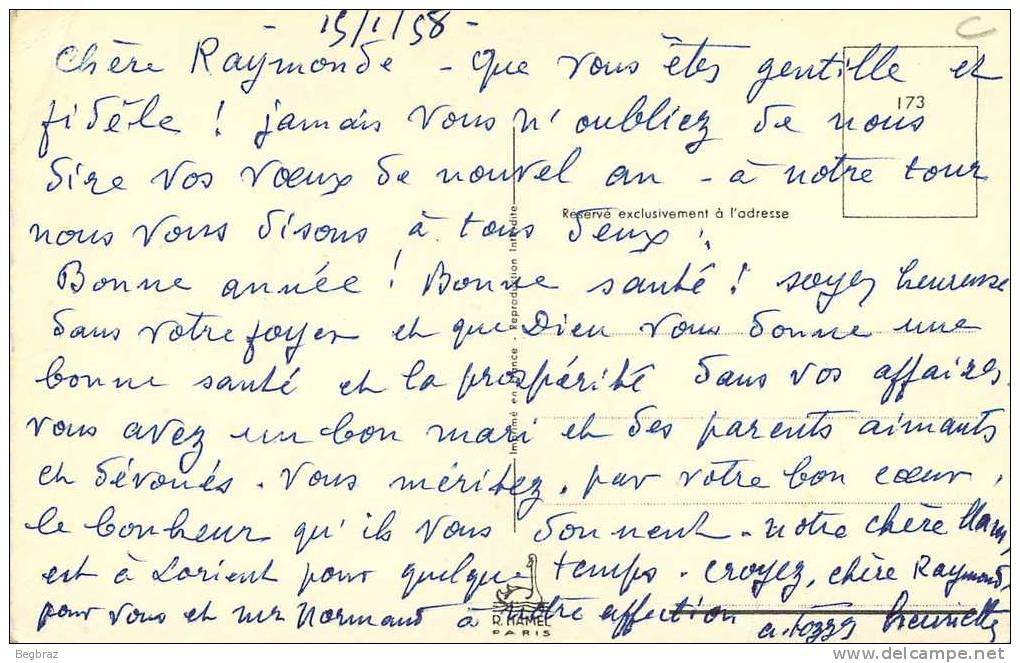 15/1/58 -
C
chère Raymonde - que vous êtes gentille et
173
fidèle ! jamais vous n'oubliez de nous
dire vos vœux de nouvel an - à notre tour
Réservé exclusivement à l'adresse
nous vous disons à tous deux :
Bonne année ! Bonne santé ! soyez heureuse
dans votre foyer et que Dieu vous donne une
bonne santé et la prospérité dans vos affaires.
vous avez un bon mari et des parents aimants
et dévoués. Vous méritez, par votre bon cœur,
le bonheur qu'ils vous donnent. notre chère
est à Lorient pour quelque temps. croyez, chère Raymonde,
pour vous et mr Normand à notre affection
Henriette
Imprimé en France - Reproduction Interdite
R. HAMEL
PARIS
Begbraz
www.delcampe.net